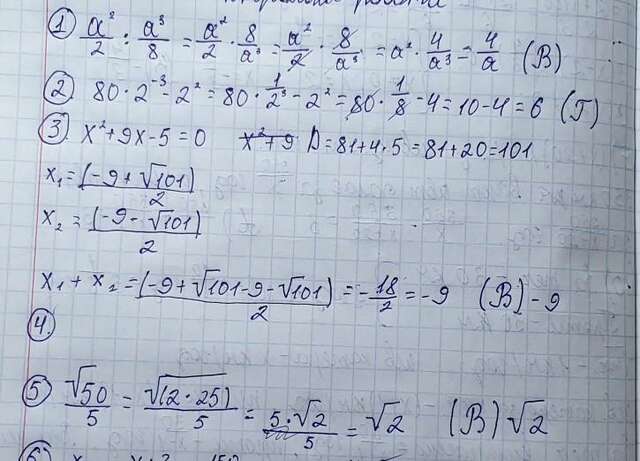 ① a²/2 : a³/8 = a²/2 · 8/a³ = a²/2 · 8/a³ = a² · 4/a³ = 4/a (В)
② 80 · 2⁻³ - 2² = 80 · 1/2³ - 2² = 80 · 1/8 - 4 = 10 - 4 = 6 (Г)
③ x² + 9x - 5 = 0 x² + 9 D = 81 + 4 · 5 = 81 + 20 = 101
x₁ = (-9 + √101)/2
x₂ = (-9 - √101)/2
x₁ + x₂ = (-9 + √101 - 9 - √101)/2 = -18/2 = -9 (В) - 9
④
⑤ √50/5 = √(2 · 25)/5 = 5 · √2/5 = √2 (В) √2